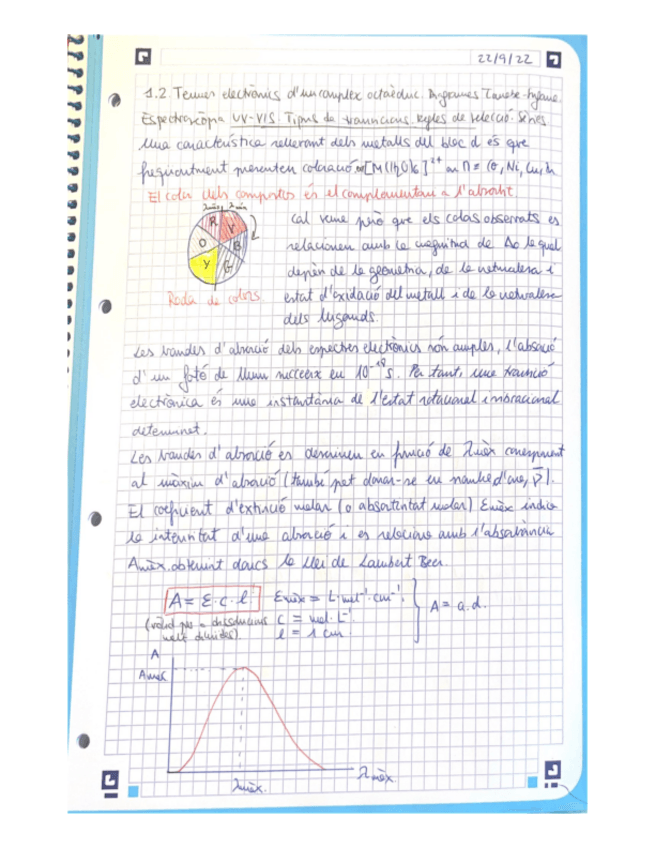 22/9/22
1.2. Termes electrònics d'un complex octaèdric. Diagrames Tanabe-Sugano.
Espectroscòpia UV-VIS. Tipus de transicions. Regles de selecció. Sèries
Una característica rellevant dels metalls del bloc d és que
freqüentment presenten coloració [M(H2O)6]2+ on M = Co, Ni, Cu,
El color dels compostos és el complementari a l'absorbit
λmàx λmín
R
V
O
B
Y
G
Roda de colors.
Cal veure però que els colors observats es
relacionen amb la magnitud de Δo la qual
depèn de la geometria, de la naturalesa i
estat d'oxidació del metall i de la naturalesa
dels lligands.
Les bandes d'absorció dels espectres electrònics són amples, l'absorció
d'un fotó de llum succeeix en 10-18 s. Per tant, una transició
electrònica és una instantània de l'estat rotacional i vibracional
determinat.
Les bandes d'absorció es descriuen en funció de λmàx corresponent
al màxim d'absorció (també pot donar-se en nombre d'ona, ν̄).
El coeficient d'extinció molar (o absortivitat molar) Emàx indica
la intensitat d'una absorció i es relaciona amb l'absorbància
Amàx. obtenint doncs la llei de Lambert Beer.
A = E·c·l
Emàx = L·mol-1·cm-1
(vàlid per a dissolucions
molt diluïdes).
c = mol·L-1
l = 1 cm
A = a.d.
A
Amàx
λmàx.
λmàx.